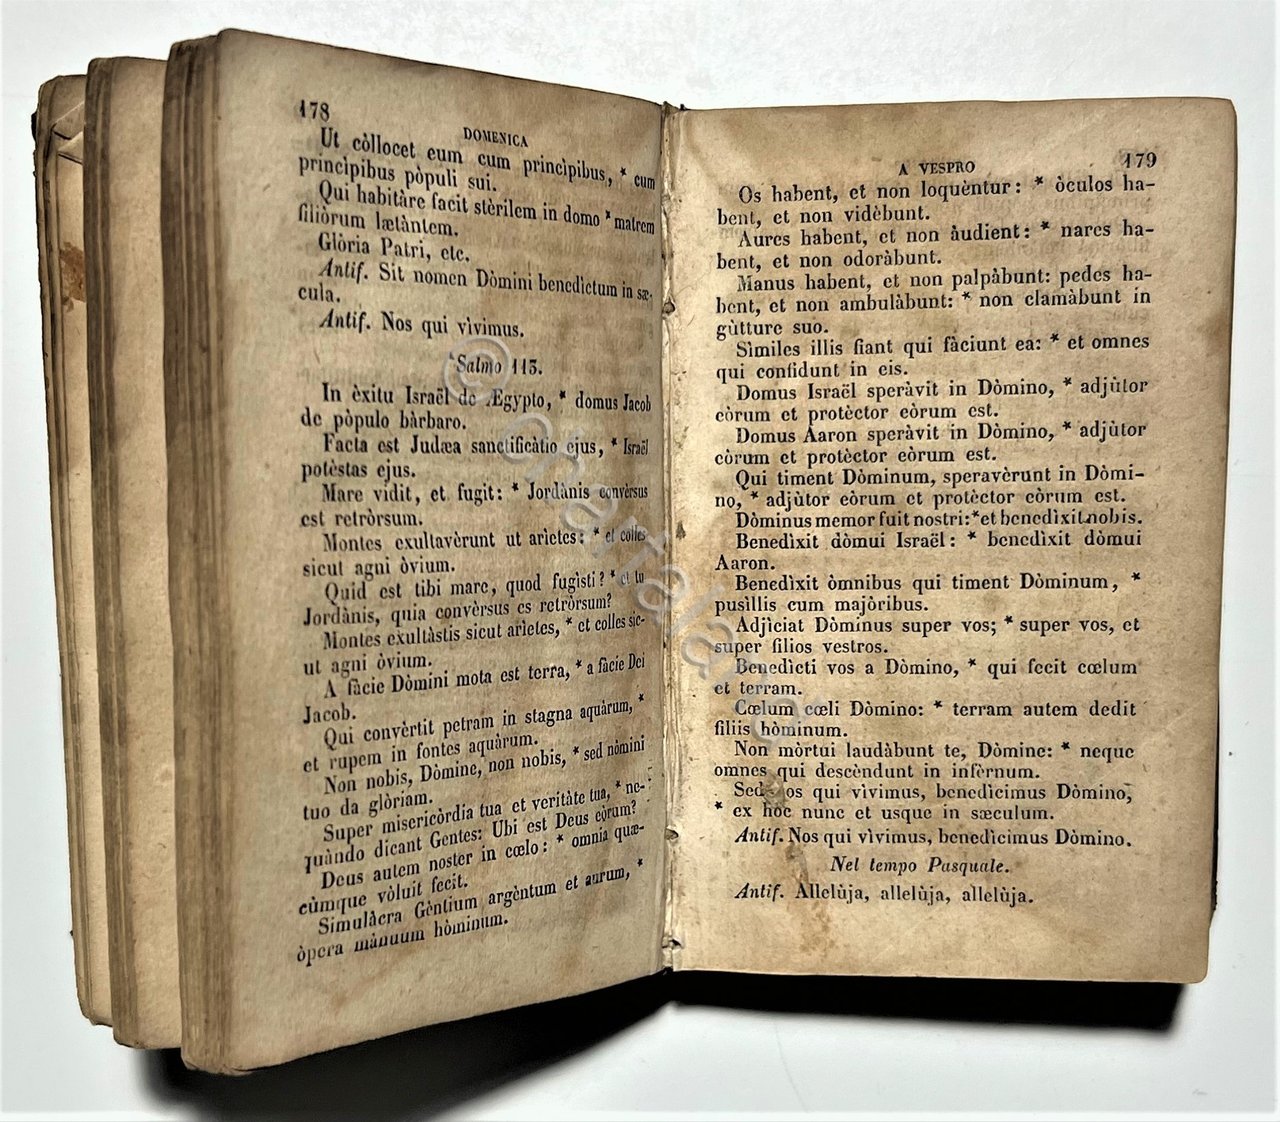 178
DOMENICA
Ut còllocet eum cum princìpibus, * cum
principibus pòpuli sui.
Qui habitàre facit stèrilem in domo * matrem
filiòrum lætàntem.
Glòria Patri, etc.
Antif. Sit nomen Dòmini benedìctum in sæ-
cula.
Antif. Nos qui vìvimus.
Salmo 113.
In èxitu Israël de Ægypto, * domus Jacob
de pòpulo bàrbaro.
Facta est Judæa sanctificàtio ejus, * Israël
potèstas ejus.
Mare vidit, et fugit: * Jordànis convèrsus
est retròrsum.
Montes exultavèrunt ut arìetes: * et colles
sicut agni òvium.
Quid est tibi mare, quod fugìsti? * et tu
Jordànis, quia convèrsus es retròrsum?
Montes exultàstis sicut arìetes, * et colles sic-
ut agni òvium.
A fàcie Dòmini mota est terra, * a fàcie Dei
Jacob.
Qui convèrtit petram in stagna aquàrum, *
et rupem in fontes aquàrum.
Non nobis, Dòmine, non nobis, * sed nòmini
tuo da glòriam.
Super misericòrdia tua et veritàte tua, * ne-
quàndo dicant Gentes: Ubi est Deus eòrum?
Deus autem noster in cœlo: * omnia quæ-
cùmque vòluit fecit.
Simulàcra Gèntium argèntum et aurum, *
òpera mànuum hòminum.
A VESPRO
179
Os habent, et non loquèntur: * òculos ha-
bent, et non vidèbunt.
Aures habent, et non àudient: * nares ha-
bent, et non odoràbunt.
Manus habent, et non palpàbunt: pedes ha-
bent, et non ambulàbunt: * non clamàbunt in
gùtture suo.
Sìmiles illis fiant qui fàciunt ea: * et omnes
qui confidunt in eis.
Domus Israël speràvit in Dòmino, * adjùtor
eòrum et protèctor eòrum est.
Domus Aaron speràvit in Dòmino, * adjùtor
còrum et protèctor eòrum est.
Qui timent Dòminum, speravèrunt in Dòmi-
no, * adjùtor eòrum et protèctor eòrum est.
Dòminus memor fuit nostri: * et benedìxit nobis.
Benedìxit dòmui Israël: * benedìxit dòmui
Aaron.
Benedìxit òmnibus qui timent Dòminum, *
pusìllis cum majòribus.
Adjìciat Dòminus super vos; * super vos, et
super filios vestros.
Benedìcti vos a Dòmino, * qui fecit cœlum
et terram.
Cœlum cœli Dòmino: * terram autem dedit
filiis hòminum.
Non mòrtui laudàbunt te, Dòmine: * neque
omnes qui descèndunt in infèrnum.
Sed nos qui vìvimus, benedìcimus Dòmino,
* ex hoc nunc et usque in sæculum.
Antif. Nos qui vìvimus, benedìcimus Dòmino.
Nel tempo Pasquale.
Antif. Allelùja, allelùja, allelùja.